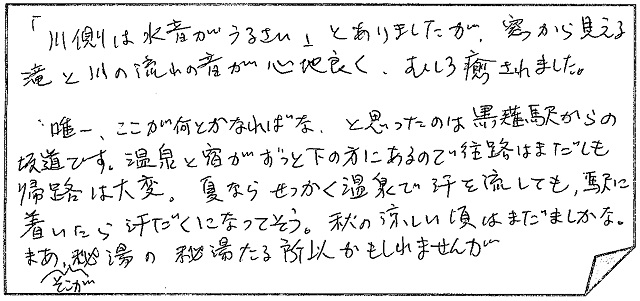 「川側は水音がうるさい」とありましたが、窓から見える
滝と川の流れの音が心地良く、むしろ癒されました。
唯一、ここが何とかなればな、と思ったのは黒薙駅からの
坂道です。温泉と宿がずっと下の方にあるので往路はまだしも
帰路は大変。夏ならせっかく温泉で汗を流しても、駅に
着いたら汗だくになってそう。秋の涼しい頃はまだましかな。
まあ、そこが秘湯の秘湯たる所以かもしれませんが